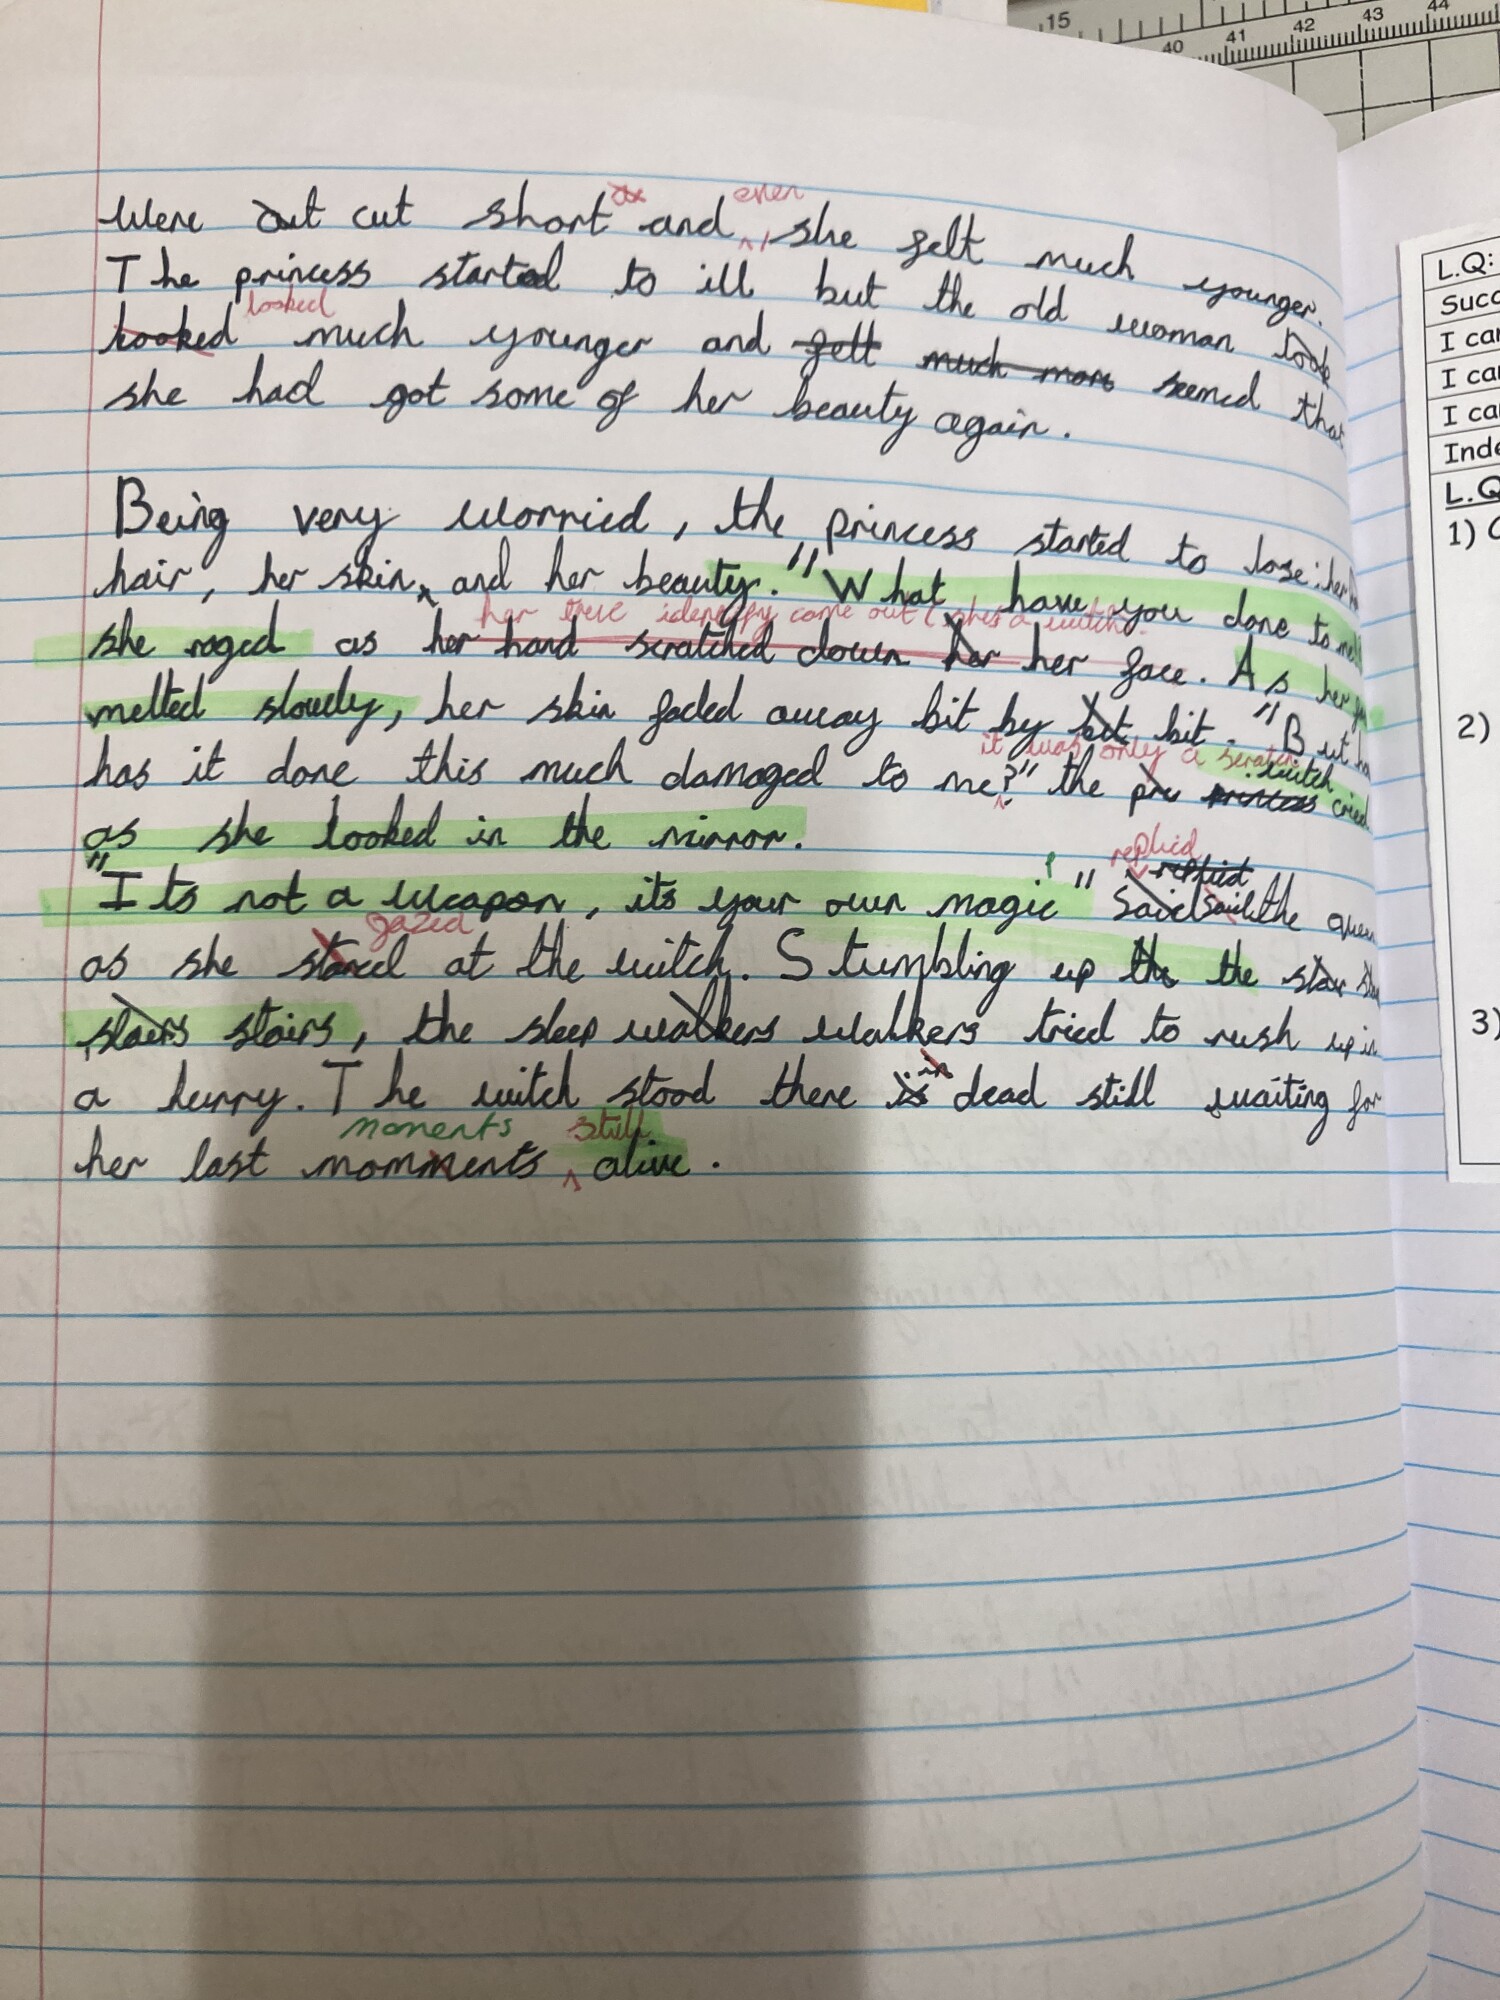 15 40 41 42 43 44
even
were out cut short and she felt much younger.
The princess started to ill but the old woman look
looked
looked much younger and felt much more seemed that
she had got some of her beauty again.
Being very worried, the princess started to lose her
hair, her skin, and her beauty. "What have you done to me
her true identify came out (shes a witch.
she raged as her hand scratched down her her face. As her
melted slowly, her skin faded away bit by bit bit. "But
it was only a scratch
witch
has it done this much damaged to me?" the pri princess cried
as she looked in the mirror.
replied
replied
"Its not a weapon, its your own magic!" Said said the queen
gazed
as she stared at the witch. Stumbling up the the stair
stairs stairs, the sleep walkers walkers tried to rush up in
in
a hurry. The witch stood there is dead still waiting for
moments still
her last momments alive.
L.Q:
Succ
I can
I can
I can
Inde
L.Q
1)
2)
3)